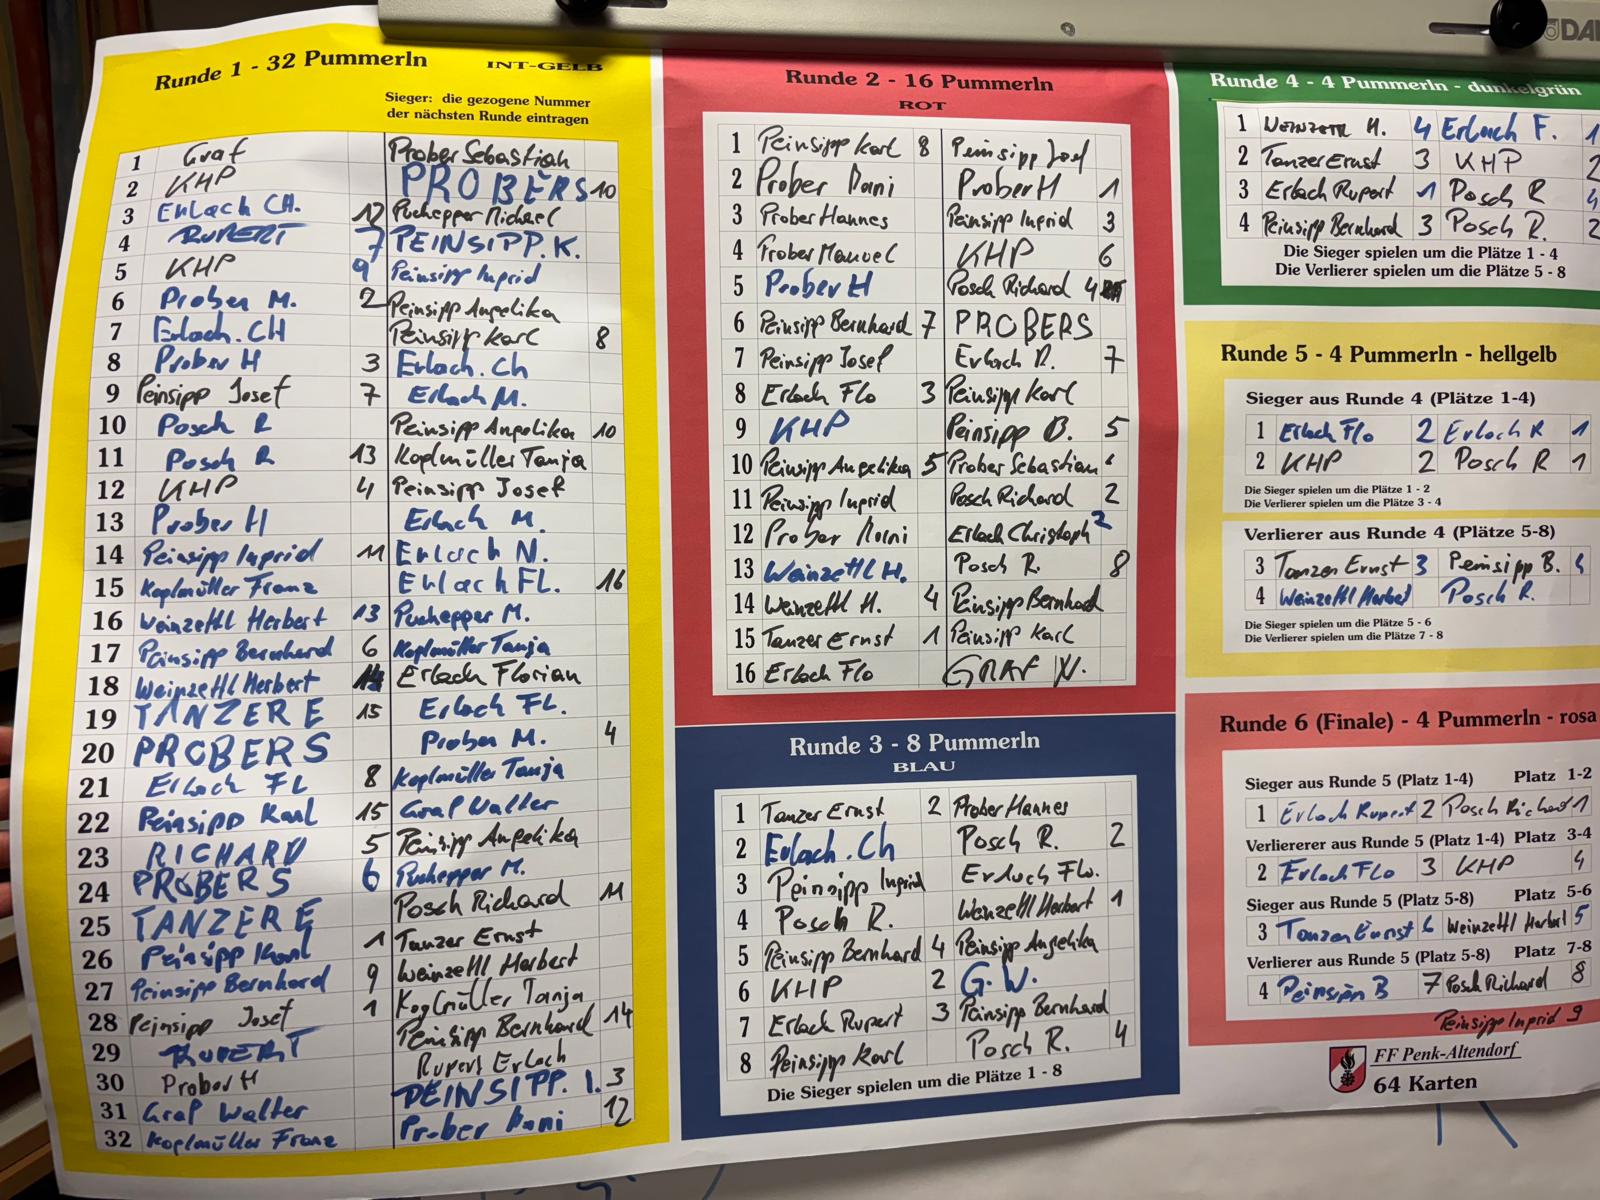 Runde 1 - 32 Pummerln INT-GELB
Sieger: die gezogene Nummer
der nächsten Runde eintragen
1 Graf Prober Sebastian
2 KHP PROBERS 10
3 Erlach CH. 12 Puchegger Michael
4 RUPERT 7 PEINSIPP. K.
5 KHP 9 Peinsipp Ingrid
6 Prober M. 2 Peinsipp Angelika
7 Erlach. CH Peinsipp Karl 8
8 Prober H 3 Erlach. Ch
9 Peinsipp Josef 7 Erlach M.
10 Posch R Peinsipp Angelika 10
11 Posch R 13 Koglmüller Tanja
12 KHP 4 Peinsipp Josef
13 Prober H Erlach M.
14 Peinsipp Ingrid 11 Erlach N.
15 Koglmüller Franz Erlach FL. 16
16 Weinzettl Herbert 13 Puchegger M.
17 Peinsipp Bernhard 6 Koglmüller Tanja
18 Weinzettl Herbert 14 Erlach Florian
19 TANZER E 15 Erlach FL.
20 PROBERS Prober M. 4
21 Erlach FL 8 Koglmüller Tanja
22 Peinsipp Karl 15 Graf Walter
23 RICHARD 5 Peinsipp Angelika
24 PROBERS 6 Puchegger M.
25 TANZER E Posch Richard 11
26 Peinsipp Karl 1 Tanzer Ernst
27 Peinsipp Bernhard 9 Weinzettl Herbert
28 Peinsipp Josef 1 Koglmüller Tanja
29 RUPERT Peinsipp Bernhard 14
30 Prober H Rupert Erlach
31 Graf Walter PEINSIPP. I. 3
32 Koglmüller Franz Prober Dani 12
Runde 2 - 16 Pummerln
ROT
1 Peinsipp Karl 8 Peinsipp Josef
2 Prober Dani Prober H 1
3 Prober Hannes Peinsipp Ingrid 3
4 Prober Manuel KHP 6
5 Prober H Posch Richard 4
6 Peinsipp Bernhard 7 PROBERS
7 Peinsipp Josef Erlach R. 7
8 Erlach Flo 3 Peinsipp Karl
9 KHP Peinsipp B. 5
10 Peinsipp Angelika 5 Prober Sebastian
11 Peinsipp Ingrid Posch Richard 2
12 Prober Dani Erlach Christoph 2
13 Weinzettl H. Posch R. 8
14 Weinzettl H. 4 Peinsipp Bernhard
15 Tanzer Ernst 1 Peinsipp Karl
16 Erlach Flo GRAF W.
Runde 3 - 8 Pummerln
BLAU
1 Tanzer Ernst 2 Prober Hannes
2 Erlach. Ch Posch R. 2
3 Peinsipp Ingrid Erlach Flo.
4 Posch R. Weinzettl Herbert 1
5 Peinsipp Bernhard 4 Peinsipp Angelika
6 KHP 2 G. W.
7 Erlach Rupert 3 Peinsipp Bernhard
8 Peinsipp Karl Posch R. 4
Die Sieger spielen um die Plätze 1 - 8
Runde 4 - 4 Pummerln - dunkelgrün
1 WEINZETTL H. 4 Erlach F. 1
2 Tanzer Ernst 3 KHP 2
3 Erlach Rupert 1 Posch R 4
4 Peinsipp Bernhard 3 Posch R. 2
Die Sieger spielen um die Plätze 1 - 4
Die Verlierer spielen um die Plätze 5 - 8
Runde 5 - 4 Pummerln - hellgelb
Sieger aus Runde 4 (Plätze 1-4)
1 Erlach Flo 2 Erlach R 1
2 KHP 2 Posch R 1
Die Sieger spielen um die Plätze 1 - 2
Die Verlierer spielen um die Plätze 3 - 4
Verlierer aus Runde 4 (Plätze 5-8)
3 Tanzer Ernst 3 Peinsipp B. 4
4 Weinzettl Herbert Posch R.
Die Sieger spielen um die Plätze 5 - 6
Die Verlierer spielen um die Plätze 7 - 8
Runde 6 (Finale) - 4 Pummerln - rosa
Sieger aus Runde 5 (Platz 1-4) Platz 1-2
1 Erlach Rupert 2 Posch Richard 1
Verliererer aus Runde 5 (Platz 1-4) Platz 3-4
2 Erlach Flo 3 KHP 4
Sieger aus Runde 5 (Platz 5-8) Platz 5-6
3 Tanzer Ernst 6 Weinzettl Herbert 5
Verlierer aus Runde 5 (Platz 5-8) Platz 7-8
4 Peinsipp B 7 Posch Richard 8
Peinsipp Ingrid 9
FF Penk-Altendorf
64 Karten